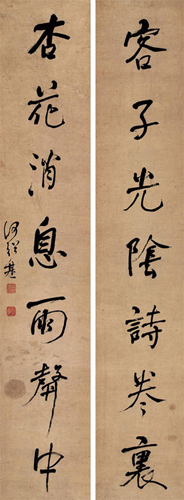 客子光陰詩卷裏
杏花消息雨聲中
何紹基